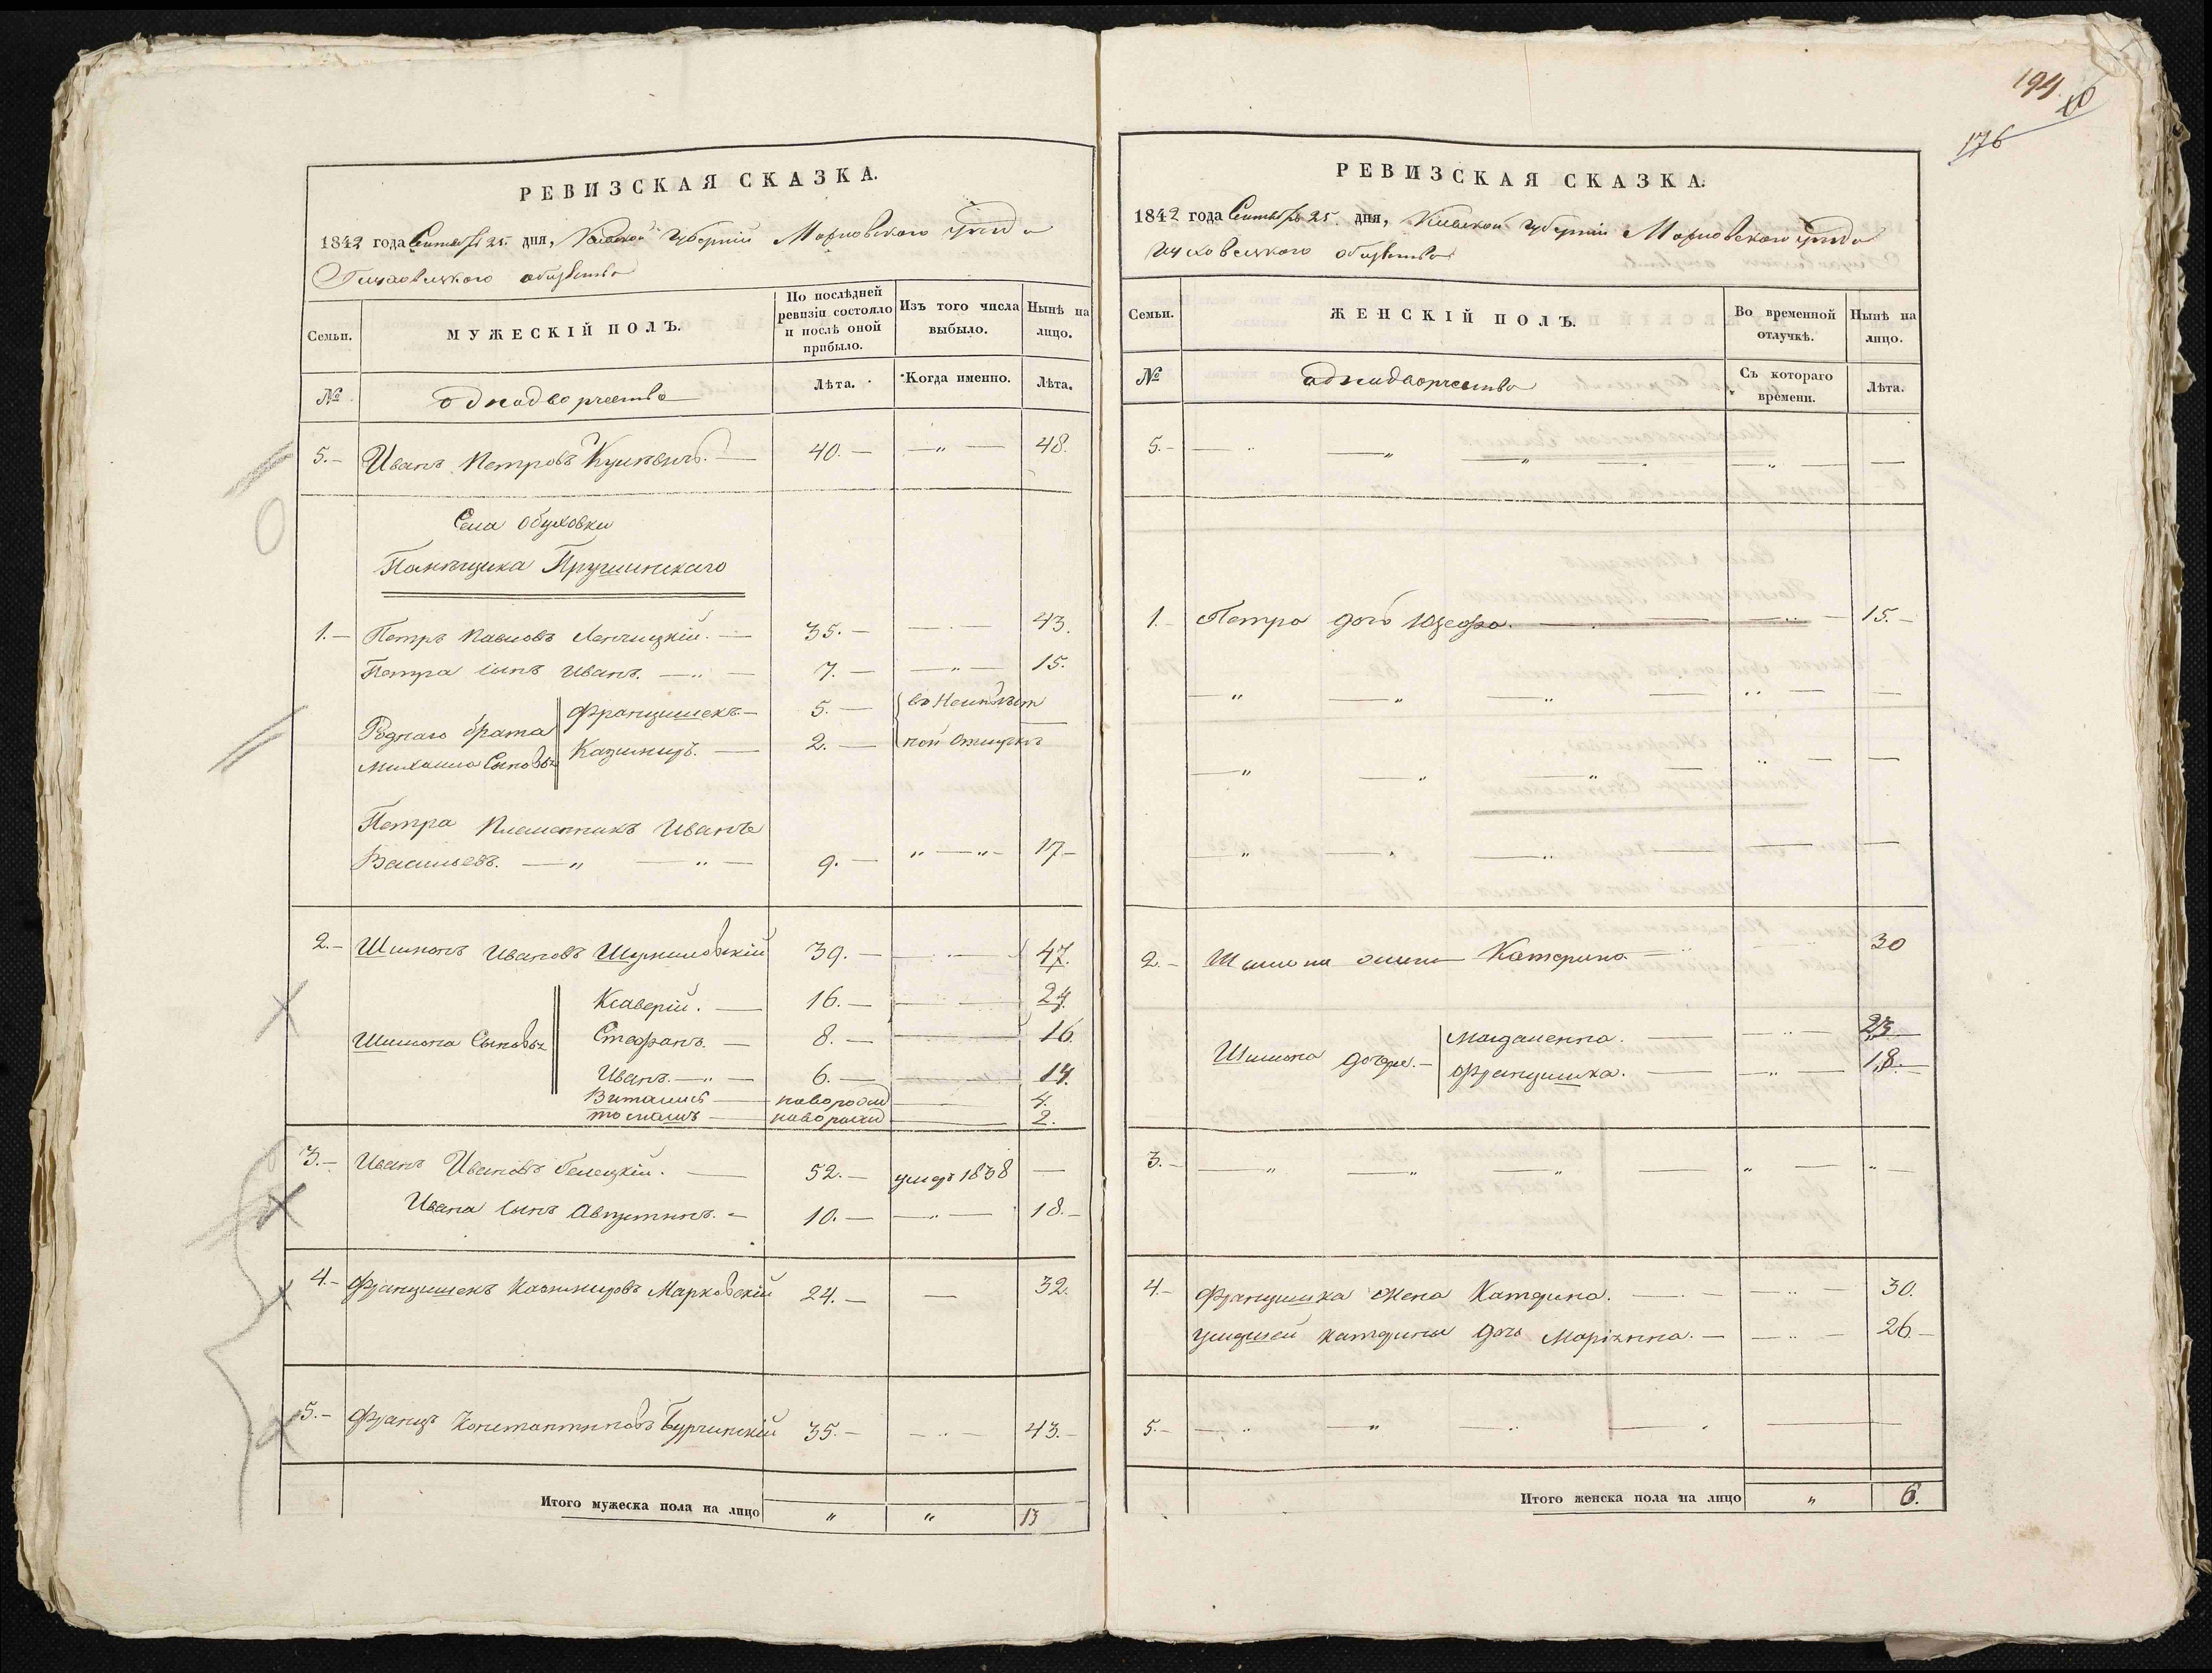 194.
10
176
РЕВИЗСКАЯ СКАЗКА.
1842 года Сентября 25. дня, Кіевской губерніи Махновского уезда
общества
Семьи.
МУЖЕСКІЙ ПОЛЪ.
По послѣдней ревизіи состояло и послѣ оной прибыло.
Изъ того числа выбыло.
Нынѣ на лицо.
№
однодворчество
Лѣта.
Когда именно.
Лѣта.
5.- Иванъ Петровъ 40.- — „ — 48.
Села Обуховки
Помѣщика Прушинскаго
1.- Петръ Павловъ Ленчицкій. — 35.- — . — 43.
Петра сынъ Иванъ. — „ — 7.- — „ — 15.
Роднаго брата Михаила Сыновья
Францишекъ.- 5.- въ Неизвѣст
Казимиръ. — 2.- ной отлучкѣ
Петра племенникъ Иванъ
Васильевъ. — „ — „ — 9.- „ — „ - 17-
2.- Шимонъ Ивановъ Шумиловскій 39.- — . — 47.
Шимона Сыновья
Ксаверій. — 16.- — 24.
Стефанъ. — 8.- — 16.
Иванъ. — „ — 6.- — 14.
Виталисъ — новорож — 4.
томашъ — новорожд — 2.
3.- Иванъ Ивановъ Белецкій. — 52.- умеръ 1838 —
Ивана сынъ Августинъ. - 10.- — „ — 18.-
4.- Францишекъ Казимировъ Марковскій 24.- — 32.
5.- Францъ Константиновъ Бурчинскій 35.- — „ — 43.-
Итого мужеска пола на лицо „ „ 13
РЕВИЗСКАЯ СКАЗКА.
1842 года Сентября 25. дня, Кіевской губерніи Махновского уезда
общества
Семьи.
ЖЕНСКІЙ ПОЛЪ.
Во временной отлучкѣ.
Нынѣ на лицо.
№
однодворчество
Съ котораго времени.
Лѣта.
5.- — „ — „ — „ — „ — —
1.- Петра дочь Юзефа. — . — — „ — 15.-
— „ — „ — „ — „ — —
— „ — „ — „ — „ — —
— „ — „ — „ — — —
2.- Шимона жена Катерина — „ 30
Шимона дочери.-
Магдаленна. — — „ — 23
Францишка. — — „ — 18.-
3.- — „ — „ — „ — „ — „ —
4.- Францишка жена Катерина. — . — — „ — 30.
умершей катерины дочь Маріанна. — — „ — 26.-
5.- — „ — „ — „ — . —
Итого женска пола на лицо „ 6.